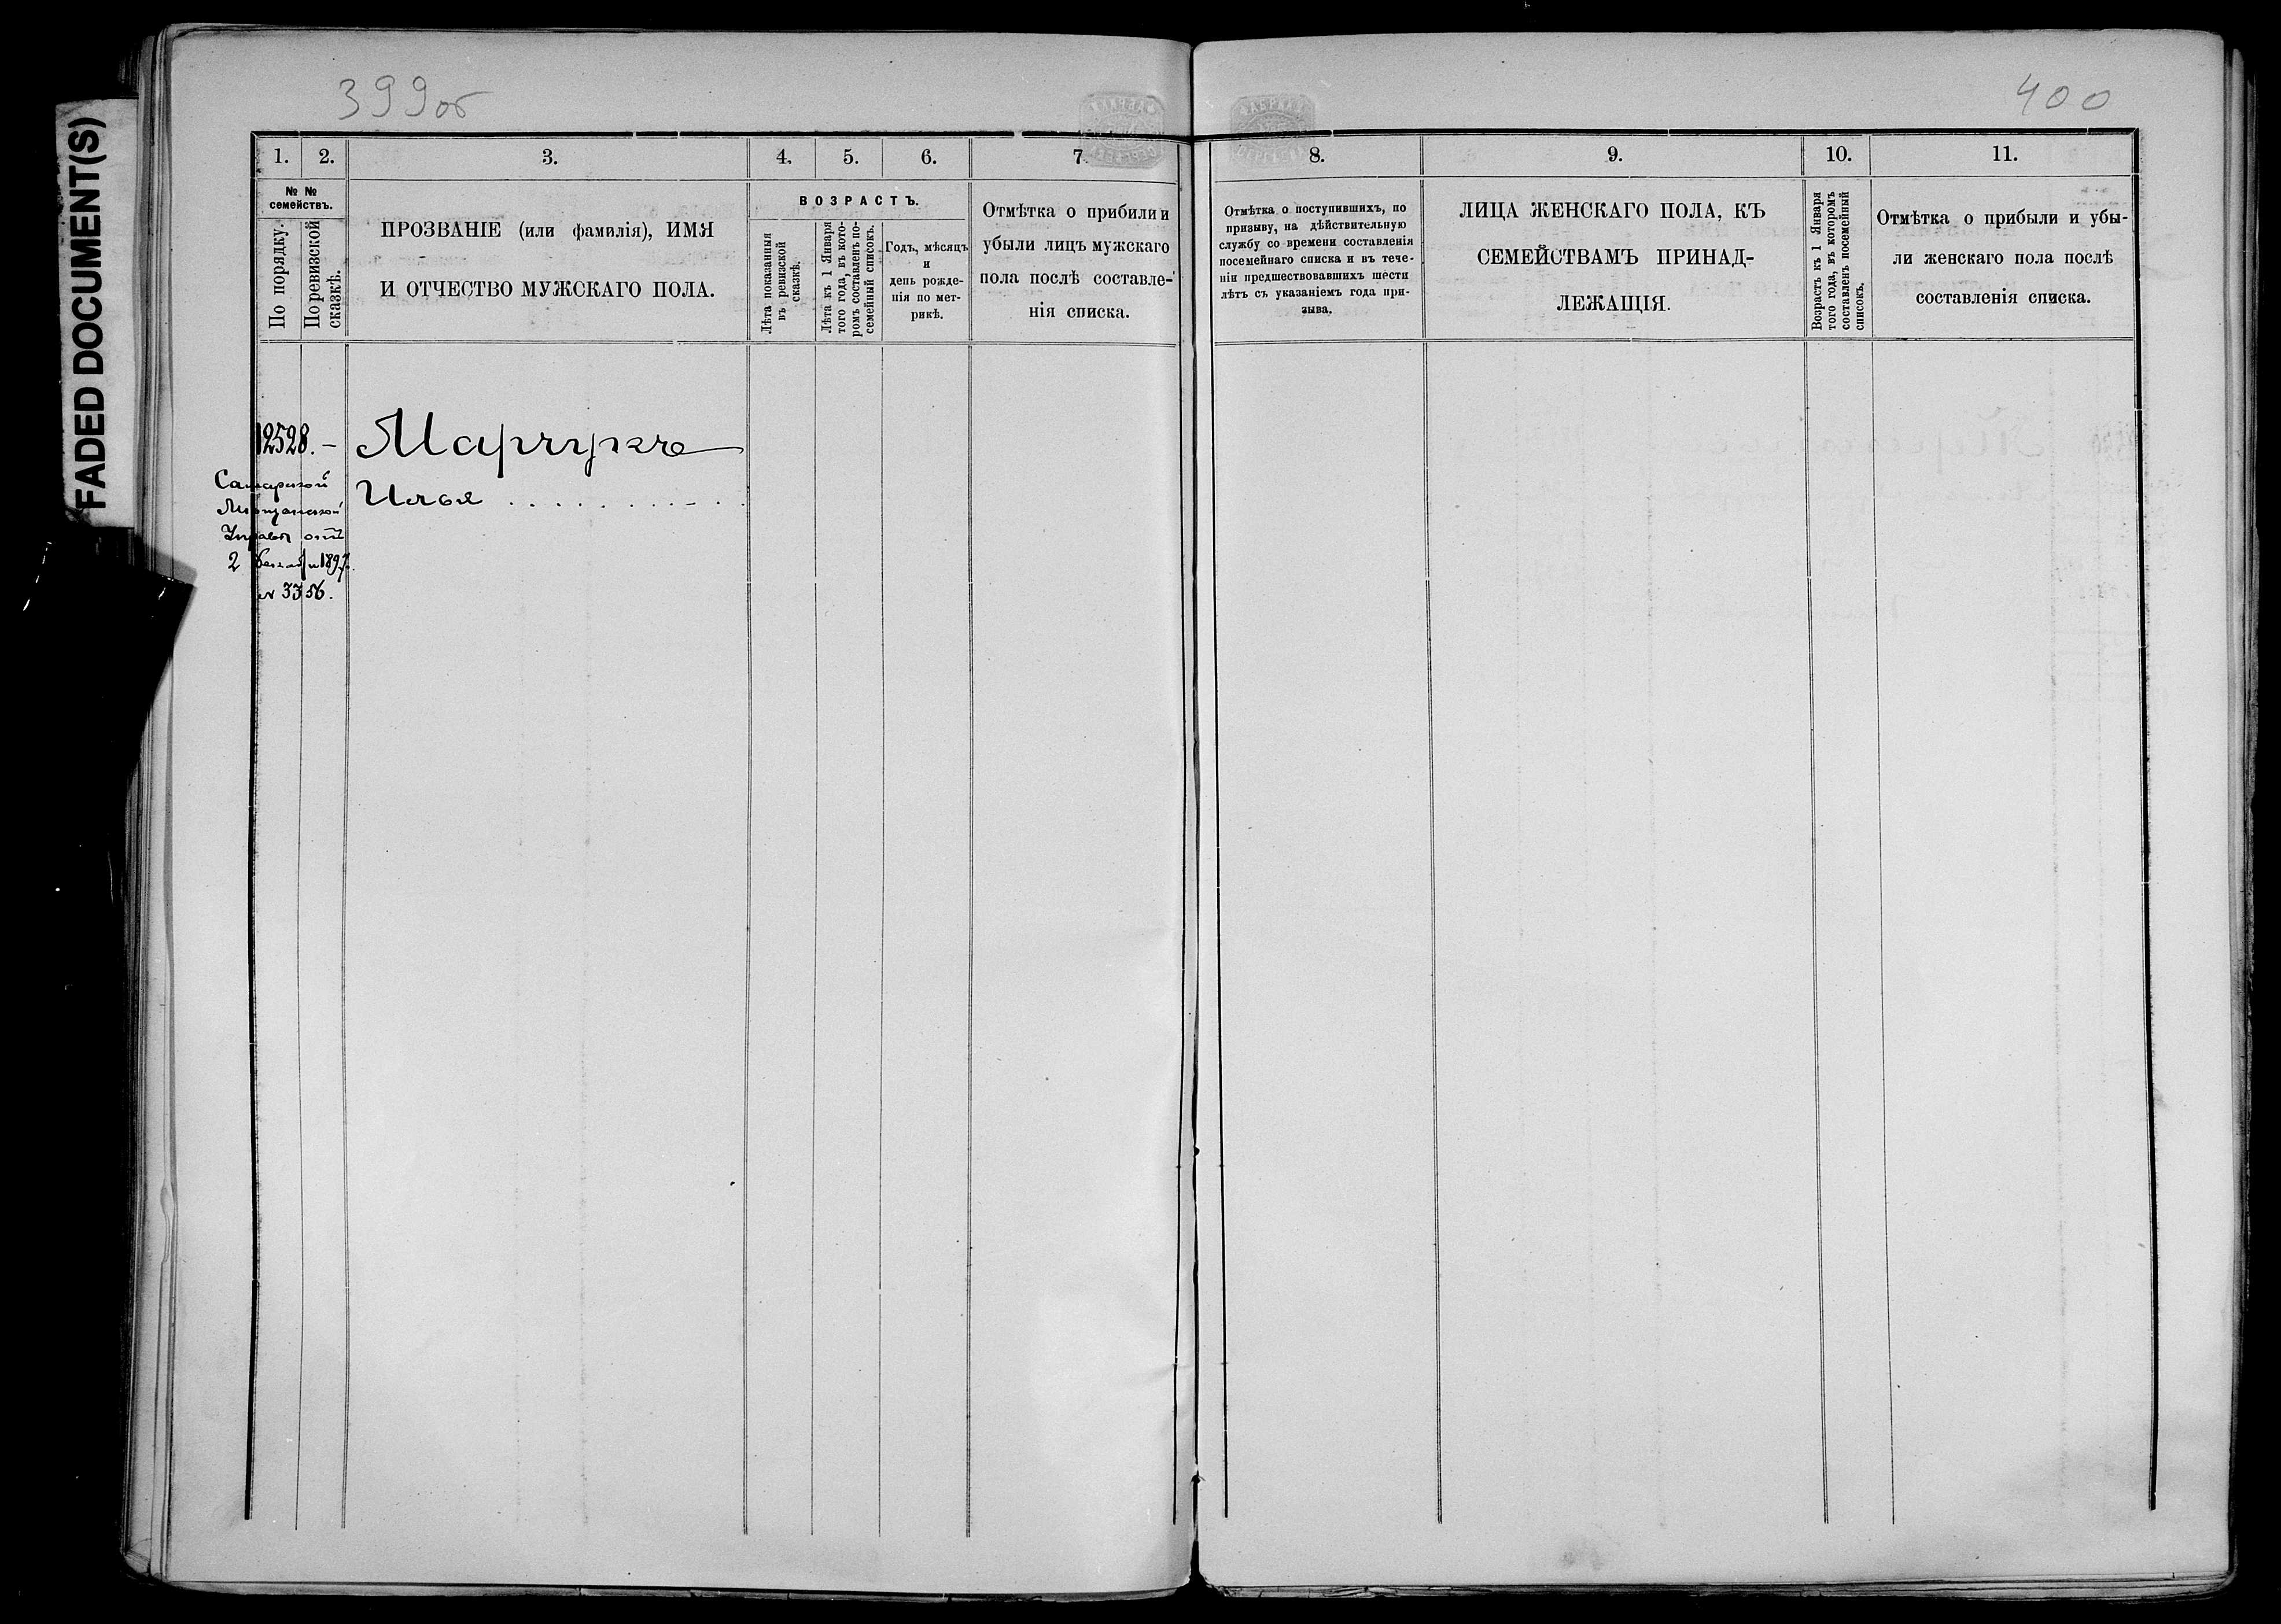 FADED DOCUMENT(S)
399об
1. 2. 3. 4. 5. 6. 7.
№ №
семействъ.
По порядку.
По ревизской
сказкѣ.
ПРОЗВАНІЕ (или фамилія), ИМЯ
И ОТЧЕСТВО МУЖСКАГО ПОЛА.
ВОЗРАСТЪ.
Лѣта показанныя
въ ревизской
сказкѣ.
Лѣта къ 1 Января
того года, въ кото-
ромъ составленъ по-
семейный списокъ.
Годъ, мѣсяцъ
и
день рожде-
нія по мет-
рикѣ.
Отмѣтка о прибыли и
убыли лицъ мужскаго
пола послѣ составле-
нія списка.
12528. –
Самарской
Мѣщанской
Управы отъ
2 1897.
№ 3356.
Марчукъ
Илья
400
8. 9. 10. 11.
Отмѣтка о поступившихъ, по
призыву, на дѣйствительную
службу со времени составленія
посемейнаго списка и въ тече-
ніи предшествовавшихъ шести
лѣтъ съ указаніемъ года при-
зыва.
ЛИЦА ЖЕНСКАГО ПОЛА, КЪ
СЕМЕЙСТВАМЪ ПРИНАД-
ЛЕЖАЩІЯ.
Возрастъ къ 1 Января
того года, въ которомъ
составленъ посемейный
списокъ.
Отмѣтка о прибыли и убы-
ли женскаго пола послѣ
составленія списка.